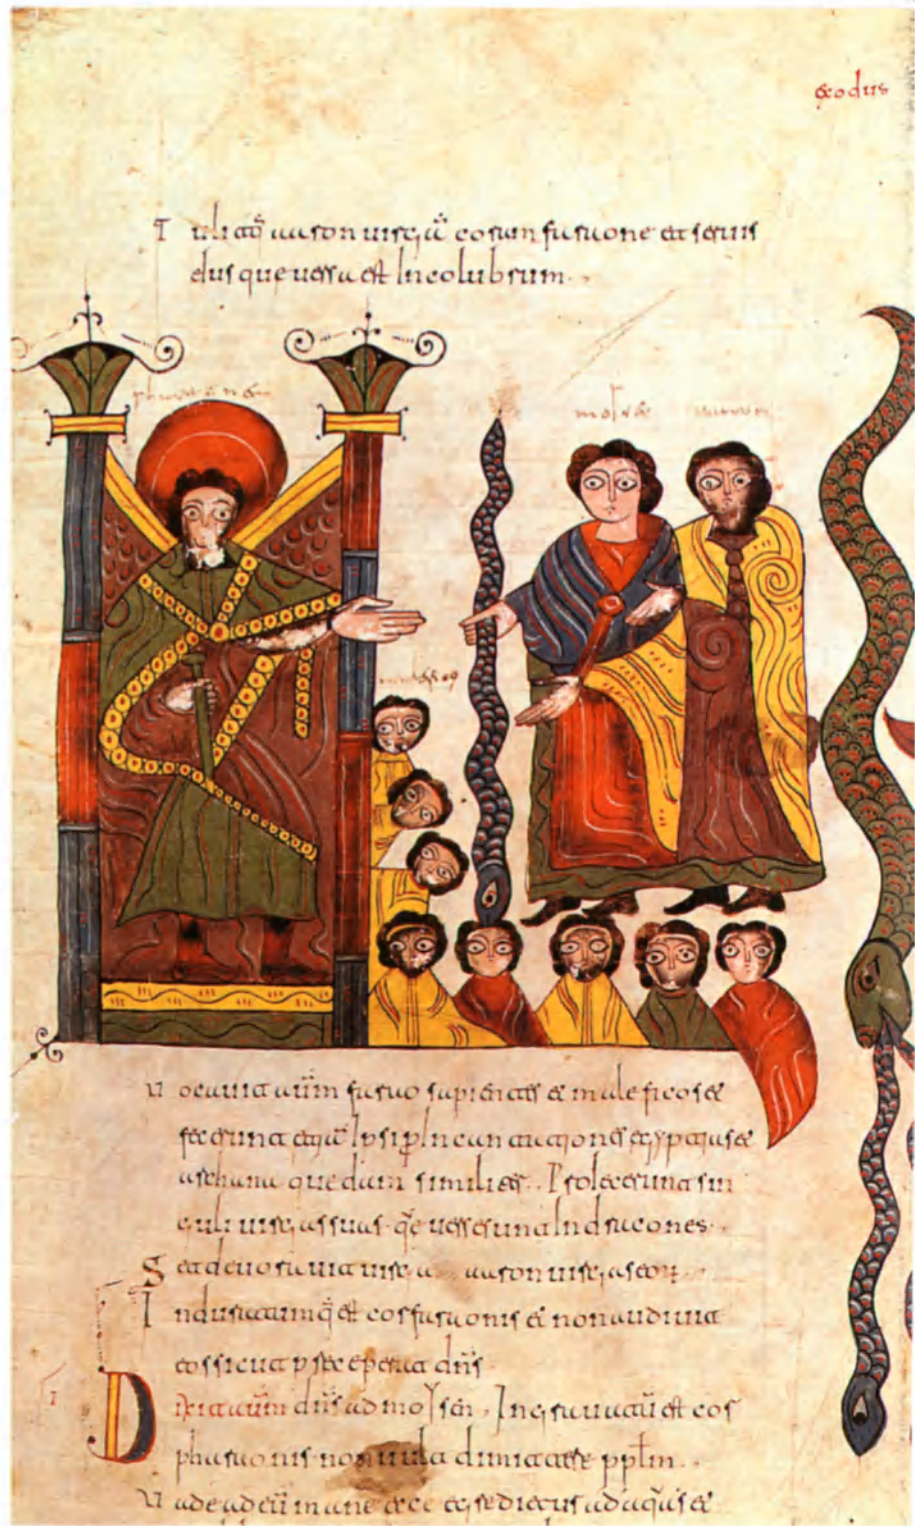 exodus
Tulitq̄ aaron uirgā coram faraone et seruis
eius que uersa est In colubrum.
moyse aaron
Uocauit autē farao sapientes et maleficos et
fecerunt etiā Ipsi p Incantationes egyptias et
archana quedam similiter. Proiecerunt sin
guli uirgas suas. q̄ uerse sunt In dracones.
Set deuorauit uirga aaron uirgas eorū.
Induratumq̄ est cor faraonis et non audiuit
eos sicut preceperat dn̄s
Dixit autē dn̄s ad moysen. Ingrauatū est cor
pharaonis non uult dimittere pplm.
Uade ad eū mane ecce egredietur ad aquas et